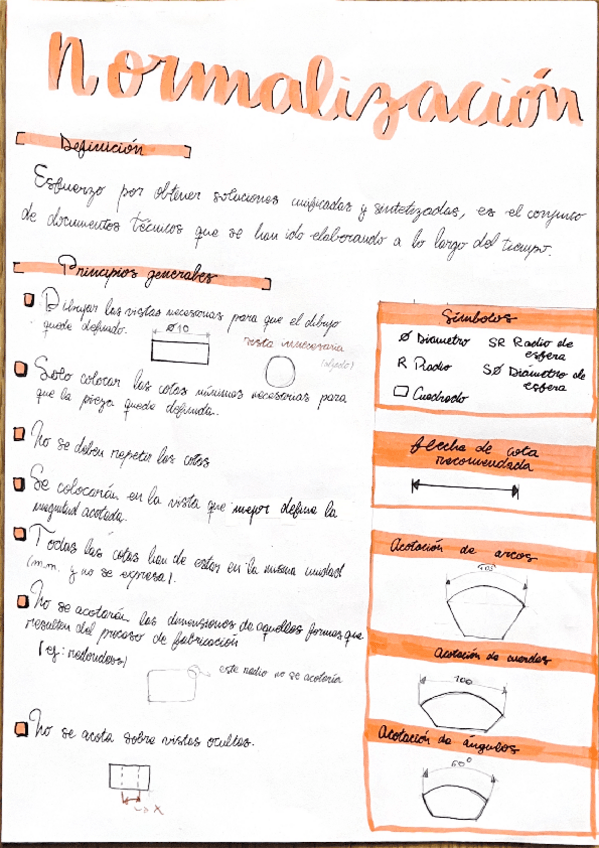 Normalización
Definición
Esfuerzo por obtener soluciones unificadas y sintetizadas, es el conjunto
de documentos técnicos que se han ido elaborando a lo largo del tiempo.
Principios generales
Dibujar las vistas necesarias para que el dibujo
quede definido.
Ø10
vista innecesaria
(alzado)
Solo colocar las cotas mínimas necesarias para
que la pieza quede definida.
No se deben repetir las cotas
Se colocarán en la vista que mejor defina la
magnitud acotada.
Todas las cotas han de estar en la misma unidad
(m.m. y no se expresa).
No se acotarán las dimensiones de aquellas formas que
resulten del proceso de fabricación
(ej: redondeos)
este radio no se acotaría
No se acota sobre vistas ocultas.
X
Símbolos
Ø Diámetro
SR Radio de
esfera
R Radio
SØ Diámetro de
esfera
Cuadrado
flecha de cota
recomendada
Acotación de arcos
105
Acotación de cuerdas
100
Acotación de ángulos
60°